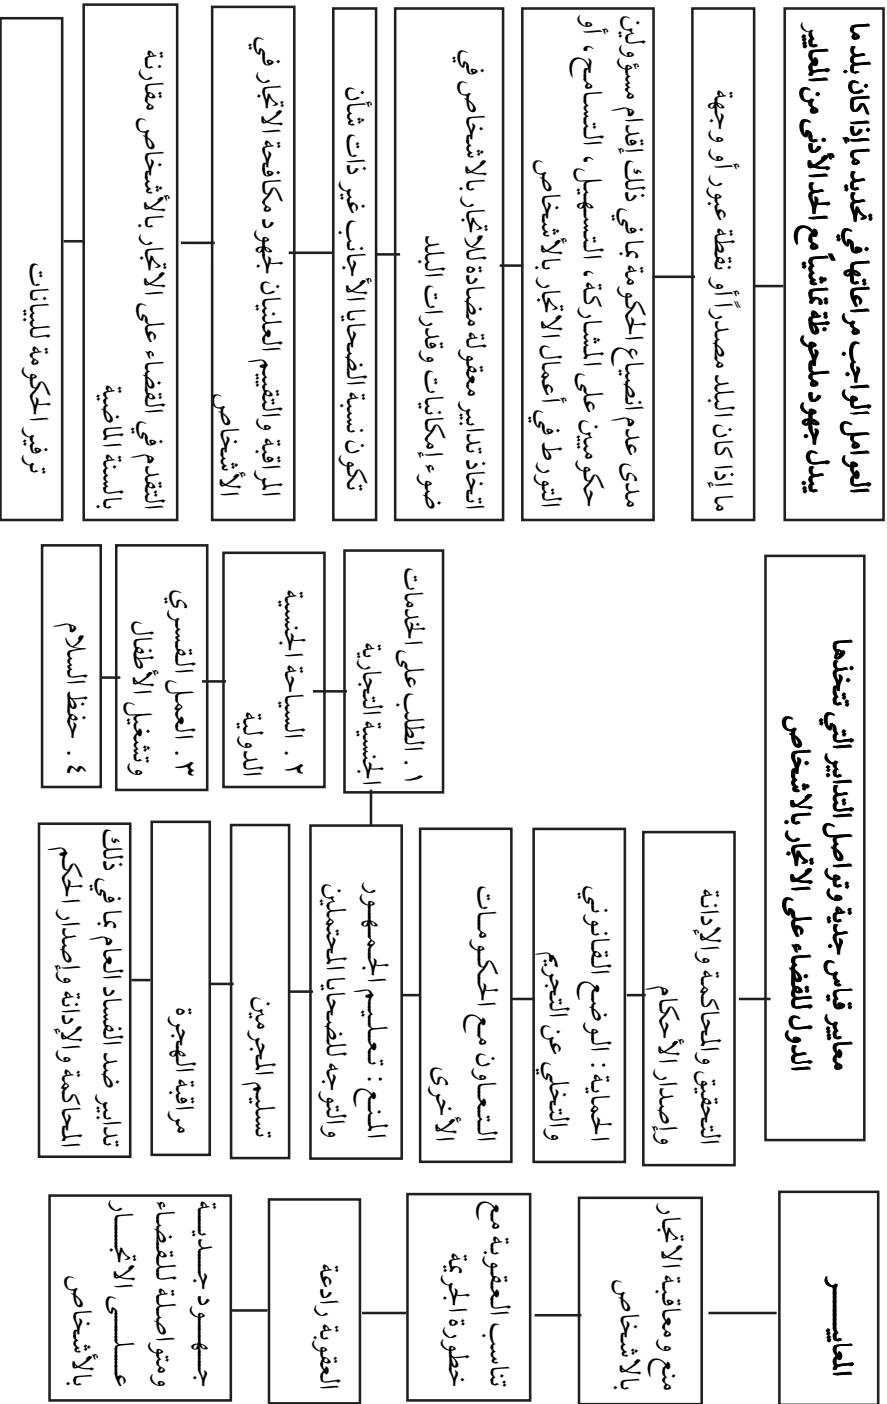 المعاييـــر
منع ومعاقبة الاتجار
بالاشخاص
تناسب العقوبة مع
خطورة الجريمة
العقوبة رادعة
جـهـود جـديـة
ومتواصلة للقضاء
عـلـى الاتجـار
بالأشخاص
معايير قياس جدية وتواصل التدابير التي تتخذها
الدول للقضاء على الاتجار بالاشخاص
التحقيق والمحاكمة والإدانة
وإصدار الأحكام
الحماية : الوضع القانوني
والتخلي عن التجريم
التعاون مع الحكومات
الأخرى
المنع : تعليم الجمهور
والتوجه للضحايا المحتملين
تسليم المجرمين
مراقبة الهجرة
تدابير ضد الفساد العام بما في ذلك
المحاكمة والإدانة وإصدار الحكم
١ . الطلب على الخدمات
الجنسية التجارية
٢ . السياحة الجنسية
الدولية
٣ . العمل القسري
وتشغيل الأطفال
٤ . حفظ السلام
العوامل الواجب مراعاتها في تحديد ما إذا كان بلد ما
يبدل جهود ملحوظة تماشياً مع الحد الأدنى من المعايير
ما إذا كان البلد مصدراً أو نقطة عبور أو وجهة
مدى عدم انصياع الحكومة بما في ذلك إقدام مسؤولين
حكوميين على المشاركة ، التسهيل ، التسامح ، أو
التورط في أعمال الاتجار بالأشخاص
اتخاذ تدابير معقولة مضادة للاتجار بالاشخاص في
ضوء إمكانيات وقدرات البلد
تكون نسبة الضحايا الأجانب غير ذات شأن
المراقبة والتقييم العلنيان لجهود مكافحة الاتجار في
الأشخاص
التقدم في القضاء على الاتجار بالأشخاص مقارنة
بالسنة الماضية
توفير الحكومة للبيانات